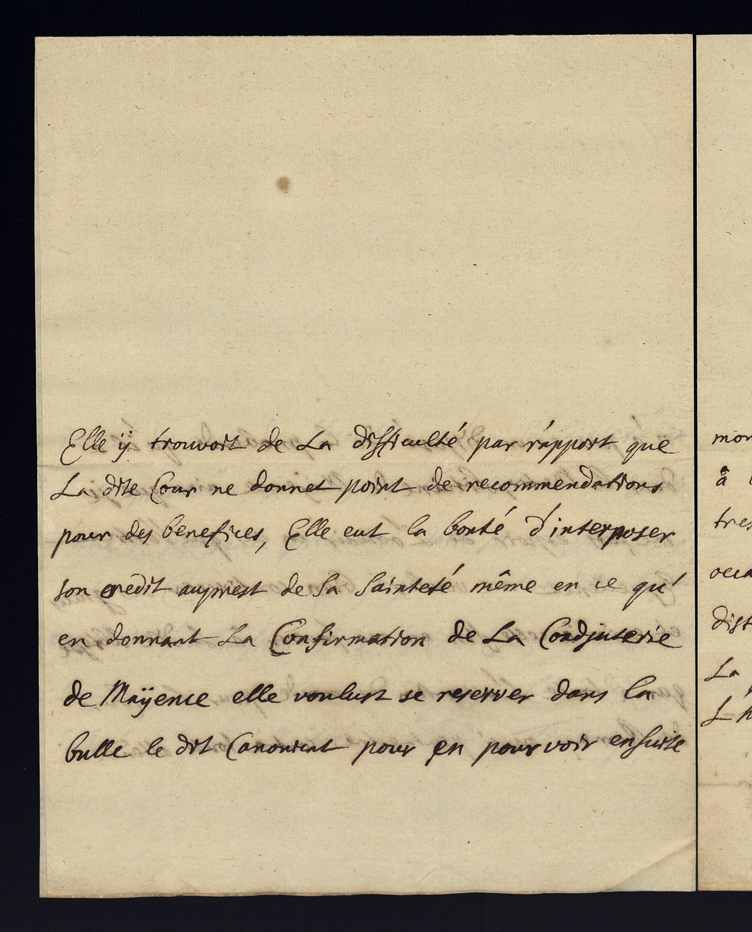 Elle ÿ trouvoit de La difficulté par rápport que
La dite Cour ne donnet point de recommendations
pour des benefices, Elle eut la bonté d'interposer
son credit auprest de Sa Sainteté même en ce qu'
en donnant La Confirmation de La Coadjuterie
de Maÿence elle voulust se reserver dans la
bulle le dit Canonicat pour en pourvoir ensuite
mon
à
tres
occa
dist
La
L'h